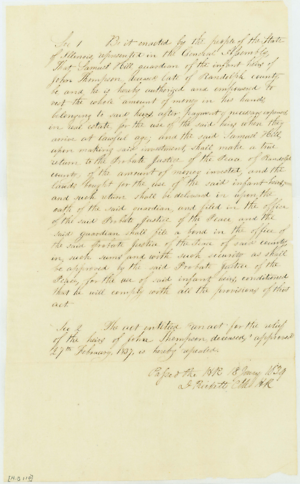 Sec 1 Be it enacted by the people of the State
of Illinois represented in the General Assembly
That Samuel Hill guardian of the infant heirs of
John Thompson, late of Randolph county
be and he is hereby authorized and empowered to
vest the whole amount of money in his hands
belonging to said heirs after payment of
in real estate for the use of the said heirs when they
arrive at lawful age, and the said Samuel Hill,
upon making said investment shall make a true
return to the Probate Justice of the Peace of Randolph
county, of the amount of money invested, and the
lands bought for the use of the said infant heirs
and such return shall be upon the
oath of the said guardian, and filed in the office
of the said Probate Justice of the Peace and the
said guardian shall file a bond in the office of
the said Probate Justice of the Peace of said county
in such sum and with such security as shall
be approved by the said Probate Justice of the
Peace, for the use of said infant heirs conditioned
that he will comply with all the provisions of this
act.
Sec 2 The act entitled "an act for the relief
of the heirs of John Thompson, deceased," approved
27th February, 1837, is hereby repealed.
Passed the H R 18 Jany 1839
D Prickett Clk H R